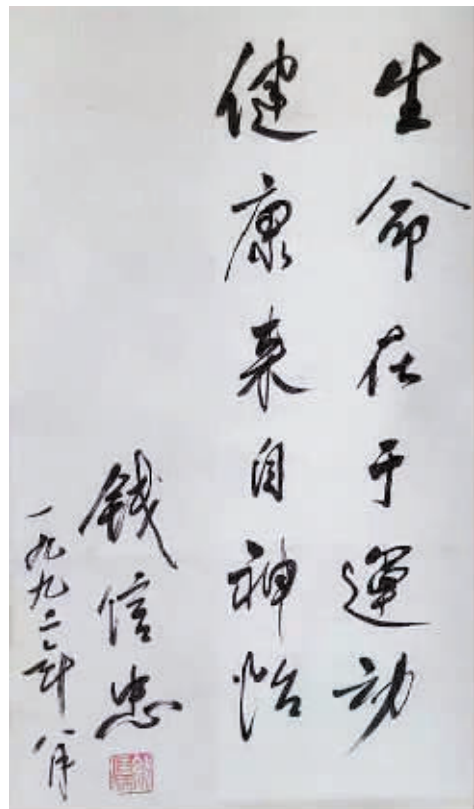 生命在于運动
健康来自神怡
錢信忠
一九九二年八月